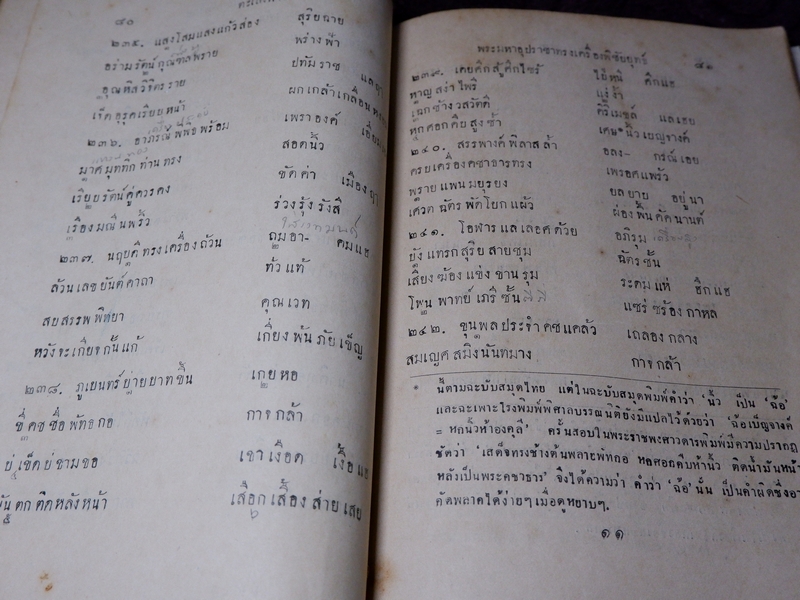 ๘๐
๒๓๕. แสงโสมแสงแก้วส่อง สุริยฉาย
อร่ามรัตน์กุณฑลพราย พร่างฟ้า
ปทัมราช
๒๓๖. อาภรณ์พิพิธพร้อม เพราองค์
มาศมุททิกท่านทรง สอดนิ้ว
เรียบรัตน์คู่ควรคง ขัดค่า เมือง
เรืองมณีนพริ้ว ร่วงรุ้งรังสี
๒๓๗. นฤบดีทรงเครื่องถ้วน ถมอา- คมแฮ
ล้วนเลขยันต์คาถา ทั่วแท้
สบสรรพพิทยา คุณเวท
หวังจะเกียจกั้นแก้ เกี่ยงพ้นภัยเข็ญ
๒๓๘. ภูเบนทร์บ่ายบาทขึ้น เกยหอ
ขี่คชชื่อพัทธกอ กาจกล้า
บ่เข็ดบ่ขามขอ เขาเงือด เงื้อแฮ
มันตกติดหลังหน้า เสือกเสื้องส่ายเสย
พระมหาอุปราชาทรงเครื่องพิชัยยุทธ์ ๘๑
๒๓๙. เคยศึกสู้ศึกไซร้ ไป่หนี ศึกแฮ
หาญสง่าไพรี แง่ง้ำ
เฉกช้างวสวัตดี คิริเมขล์ แลเฮย
หกศอกคืบสูงซ้ำ เศษนิ้วเบญจางค์
๒๔๐. สรรพางค์พิลาสล้ำ อลง- กรณ์เฮย
ครบเครื่องคชาธารทรง เพริศแพร้ว
พรายแพนมยุรยง ยลยาบ อยู่นา
เศวตฉัตรพัดโบกแผ้ว ผ่องพื้นคัคนานต์
๒๔๑. โอฬารแลเลอศด้วย อภิรุม
บังแทรกสุริยสายซุม ฉัตรชั้น
เสียงฆ้องแซ่งขานรุม ระดมแห่ ฮึกแฮ
โพนพาทย์เภรีซั้น แซร่ซร้องกาหล
๒๔๒. ขุนพลประจำคชแคล้ว เถลองกลาง
สมเญศสมิงนันทมาง กาจกล้า
* นี้ตามฉะบับสมุดไทย แต่ในฉะบับสมุดพิมพ์คำว่า 'นิ้ว' เป็น 'ฉ้อ'
และฉะเพาะโรงพิมพ์พิศาลบรรณนิติยังมีแปลไว้ด้วยว่า 'ฉ้อเบ็ญจางค์
= หกนิ้วห้าองคุลี' ครั้นสอบในพระราชพงศาวดารพิมพ์มีความปรากฏ
ชัดว่า 'เสด็จทรงช้างต้นพลายพัทกอ หกศอกคืบห้านิ้ว ติดน้ำมันหน้า
หลังเป็นพระคชาธาร' จึงได้ความว่า คำว่า 'ฉ้อ' นั้น เป็นคำผิดซึ่งอา
คัดพลาดได้ง่ายๆ เมื่อดูหยาบๆ.
๑๑